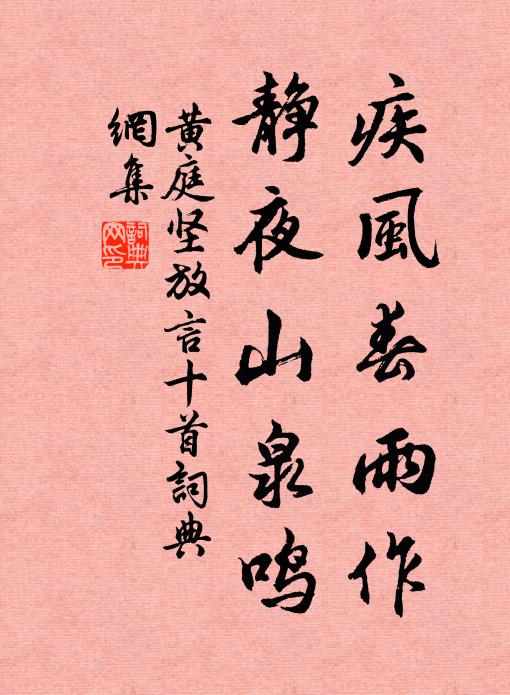 疾風春雨作
静夜山泉鸣
黄庭坚放言十首詞典
網集
詞典網印